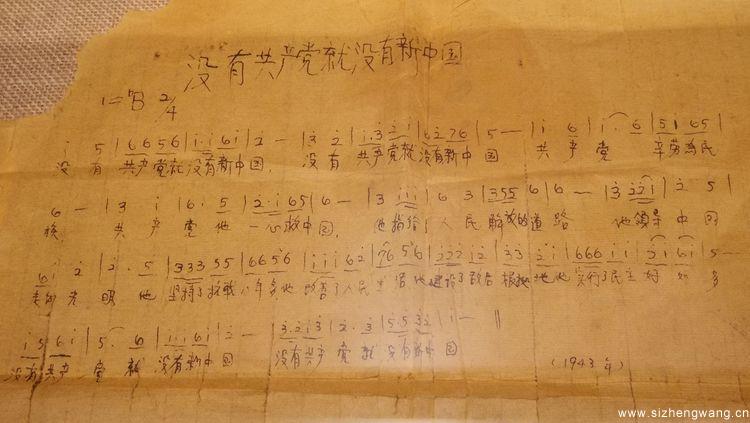 没有共产党就没有新中国
1=♭B 2/4
i 5 | 6 6 5 6 | i· i 6 i | 2 — | 3 2 | i·3 2 i | 6 2 7 6 | 5 — | i 6 | i · 6 | 5 1 6 5 |
没 有 共产党就没有新中国, 没有 共产党就没有新中国 共产党 辛劳为民
6 — | 3 i | 6· 5 | 2· i 6 5 | 6 — | 3 i i i | 6 3 | 3 5 5 6 | 6 — | 3 2 2 i | 2 5 |
族 共产党他一心救中国, 他指给了人民解放的道路 他领导中国
6 i 2 | 2· 5 | 3 3 3 5 5 | 6 6 5 6 | i i i 6 2 | 7 6 5 6 | 2 2 2 i 2 | 3 3 2 i | 6 6 6 i i | 2 i 6 i | 5 —
走向光明 他坚持了抗战八年多他改善了人民生活他建设了敌后根据地他实行了民主好如多
i 5 6 i | 5· 6 | i· i 6 i | 2 — | 3·2 i 3 | 2· 3 | 5·5 3 2 | i — ‖
没有共产党就没有新中国 没有共产党就没有新中国 (1943年)
www.sizhengwang.cn